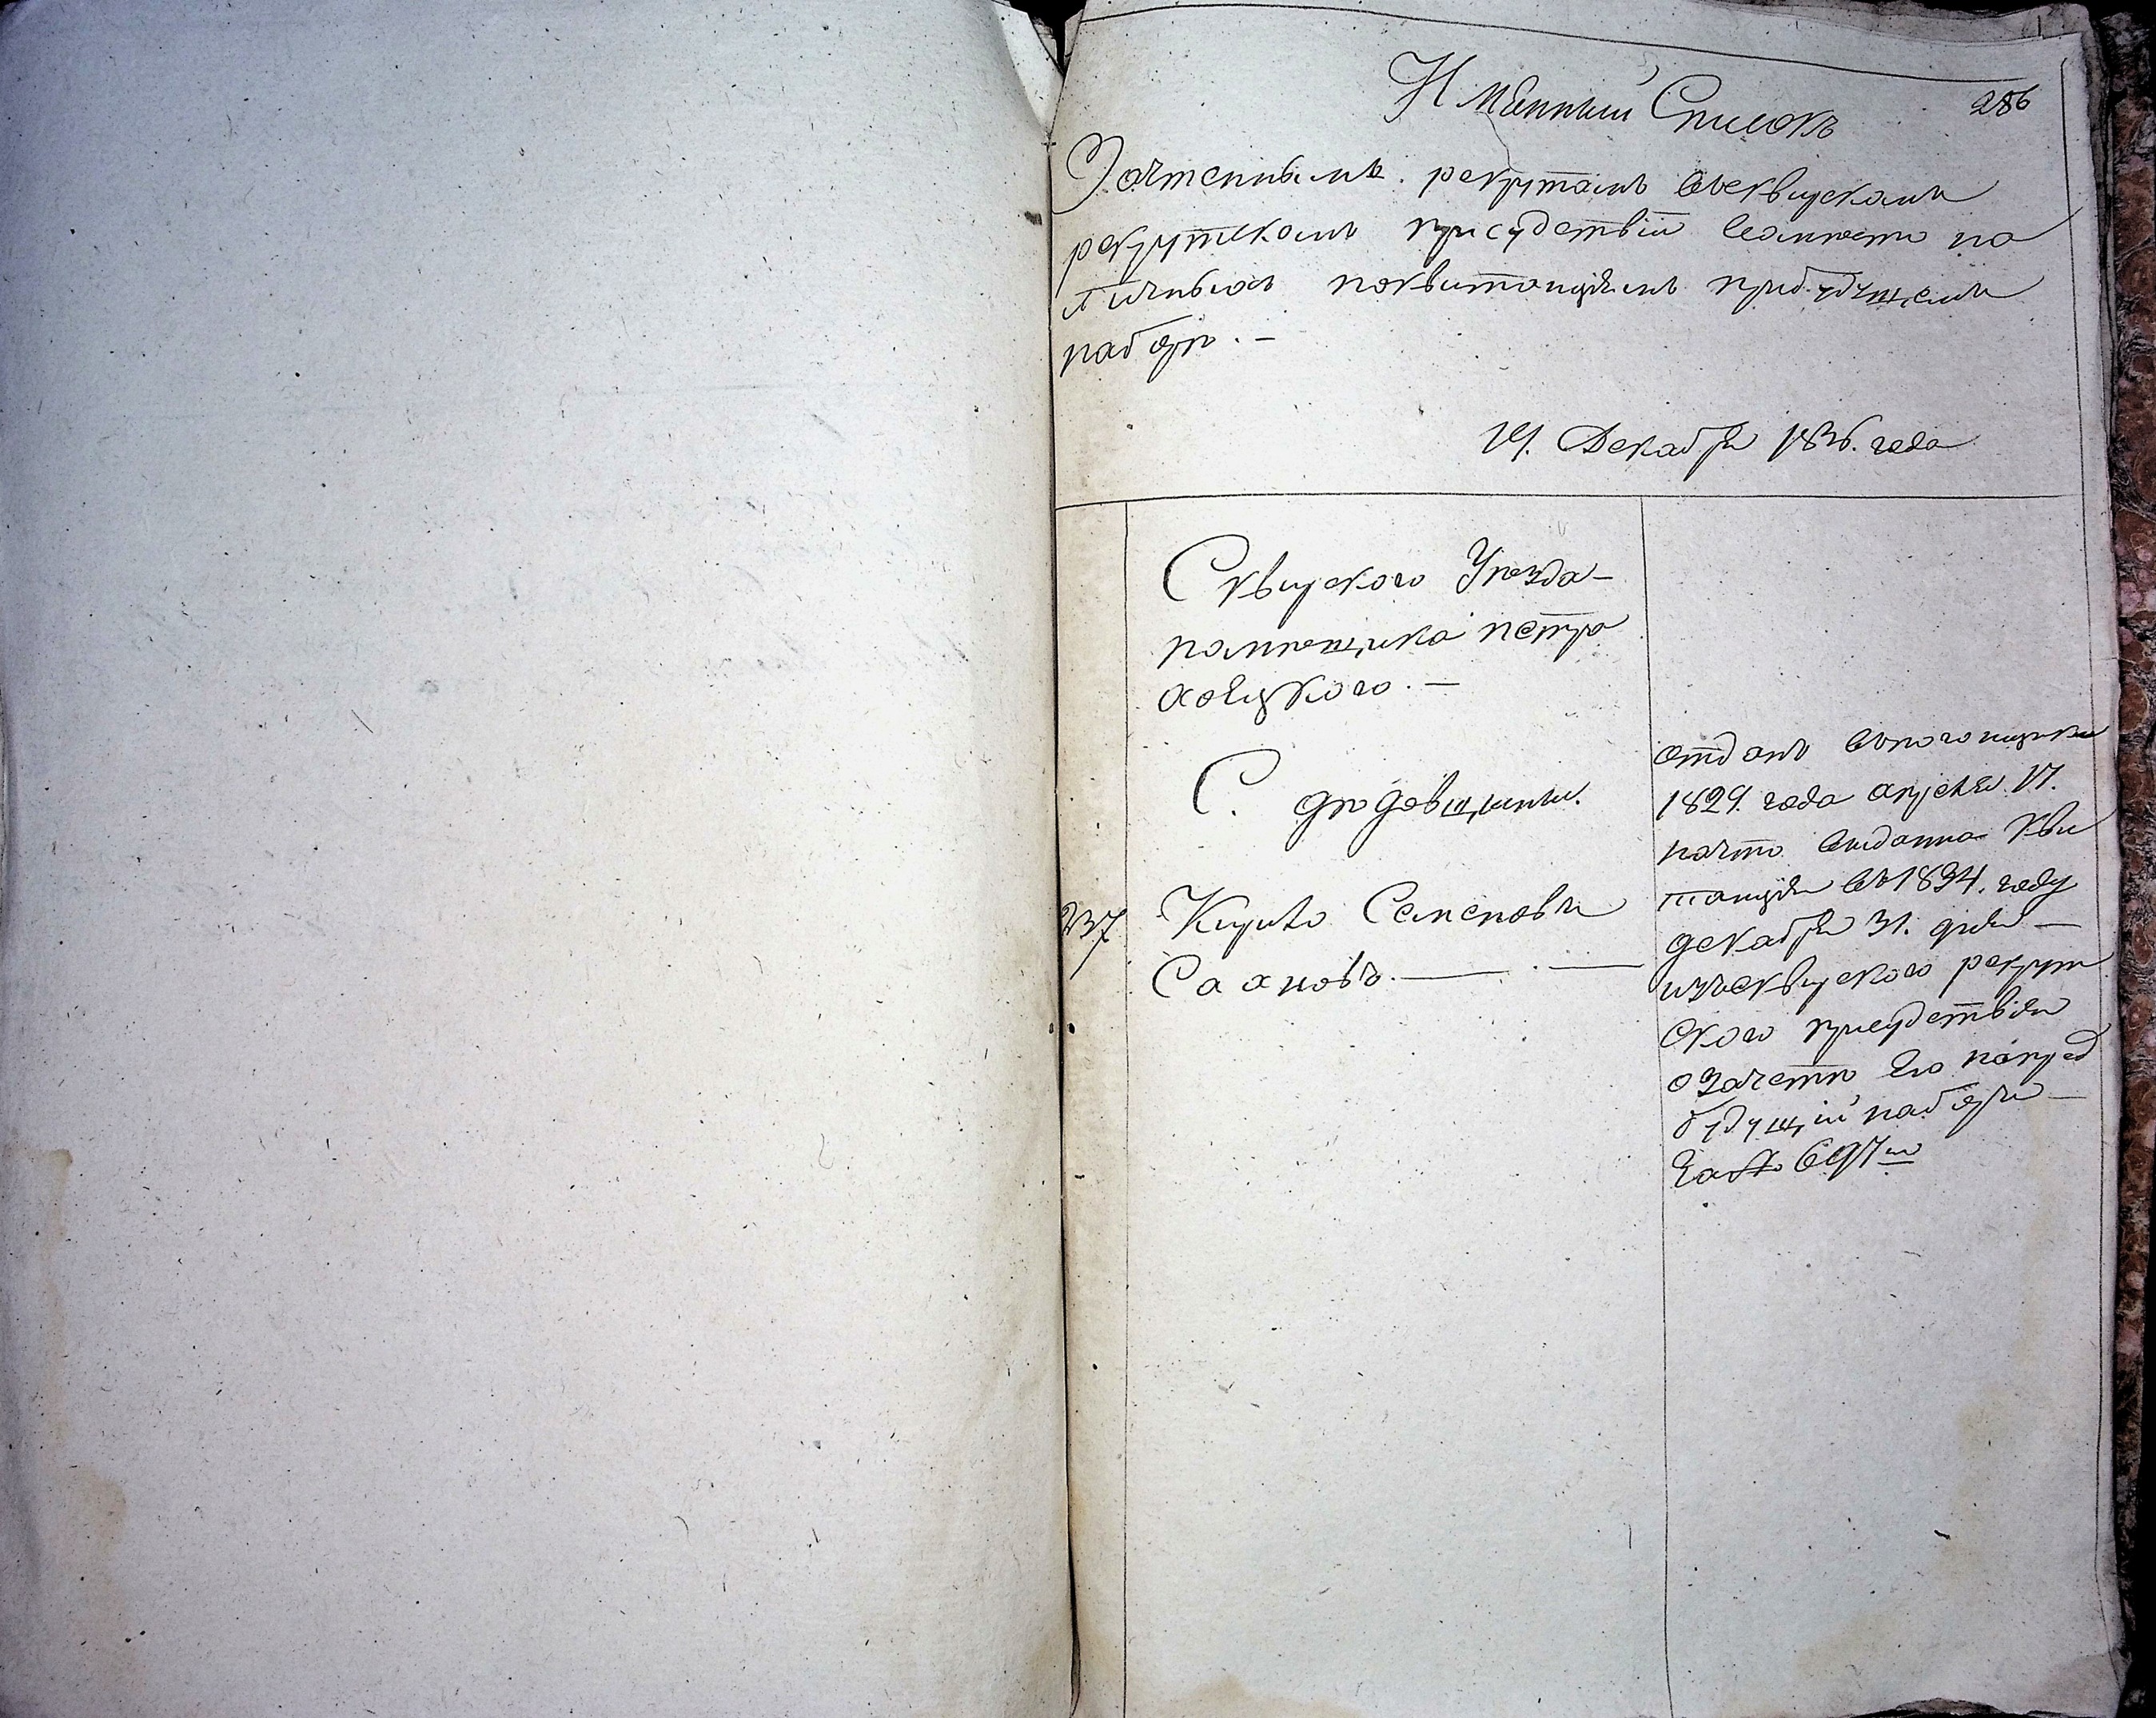 Имянный Списокъ
286
Зачтеннымъ рекрутамъ въсквирскомъ
рекрутскомъ присудствіи вамѣсто на
личныхъ поквитанціямъ прибудущемъ
наборѣ. —
14. Декабря 1836. года
Сквирского Уѣзда —
помѣщика петра
хоецкого. —
С. дродовщины.
237 Кирило Семеновъ
Сахновъ. —
отданъ впогонщики
1829. года апреля 17.
начто выданна Кви
танція въ 1834. году
декабря 31. дня —
изъсквирского рекрут
ского присудствія
озачетѣ Его напред
будущій наборъ —
за № 697м